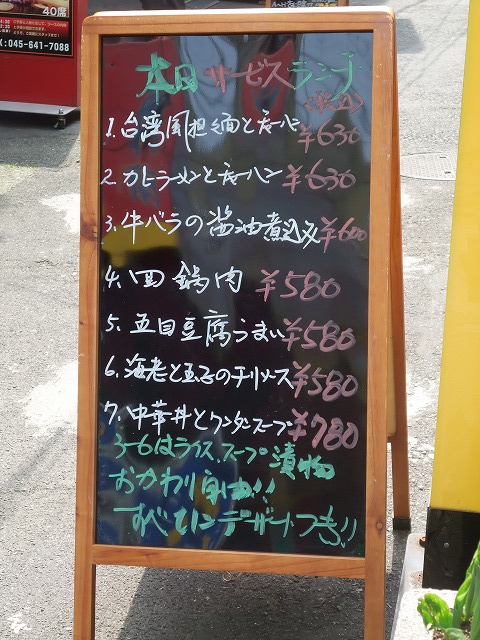 40席
045-641-7088
本日サービスランチ
(税込)
1.台湾風担々面とチャーハン ¥630
2.カニラーメンとチャーハン ¥630
3.牛バラの醤油煮込み ¥600
4.回鍋肉 ¥580
5.五目豆腐うま煮 ¥580
6.海老と玉子のチリソース ¥580
7.中華丼とワンタンスープ ¥780
3-6はライス、スープ、漬物
おかわり自由!!
すべてにデザートつき!!